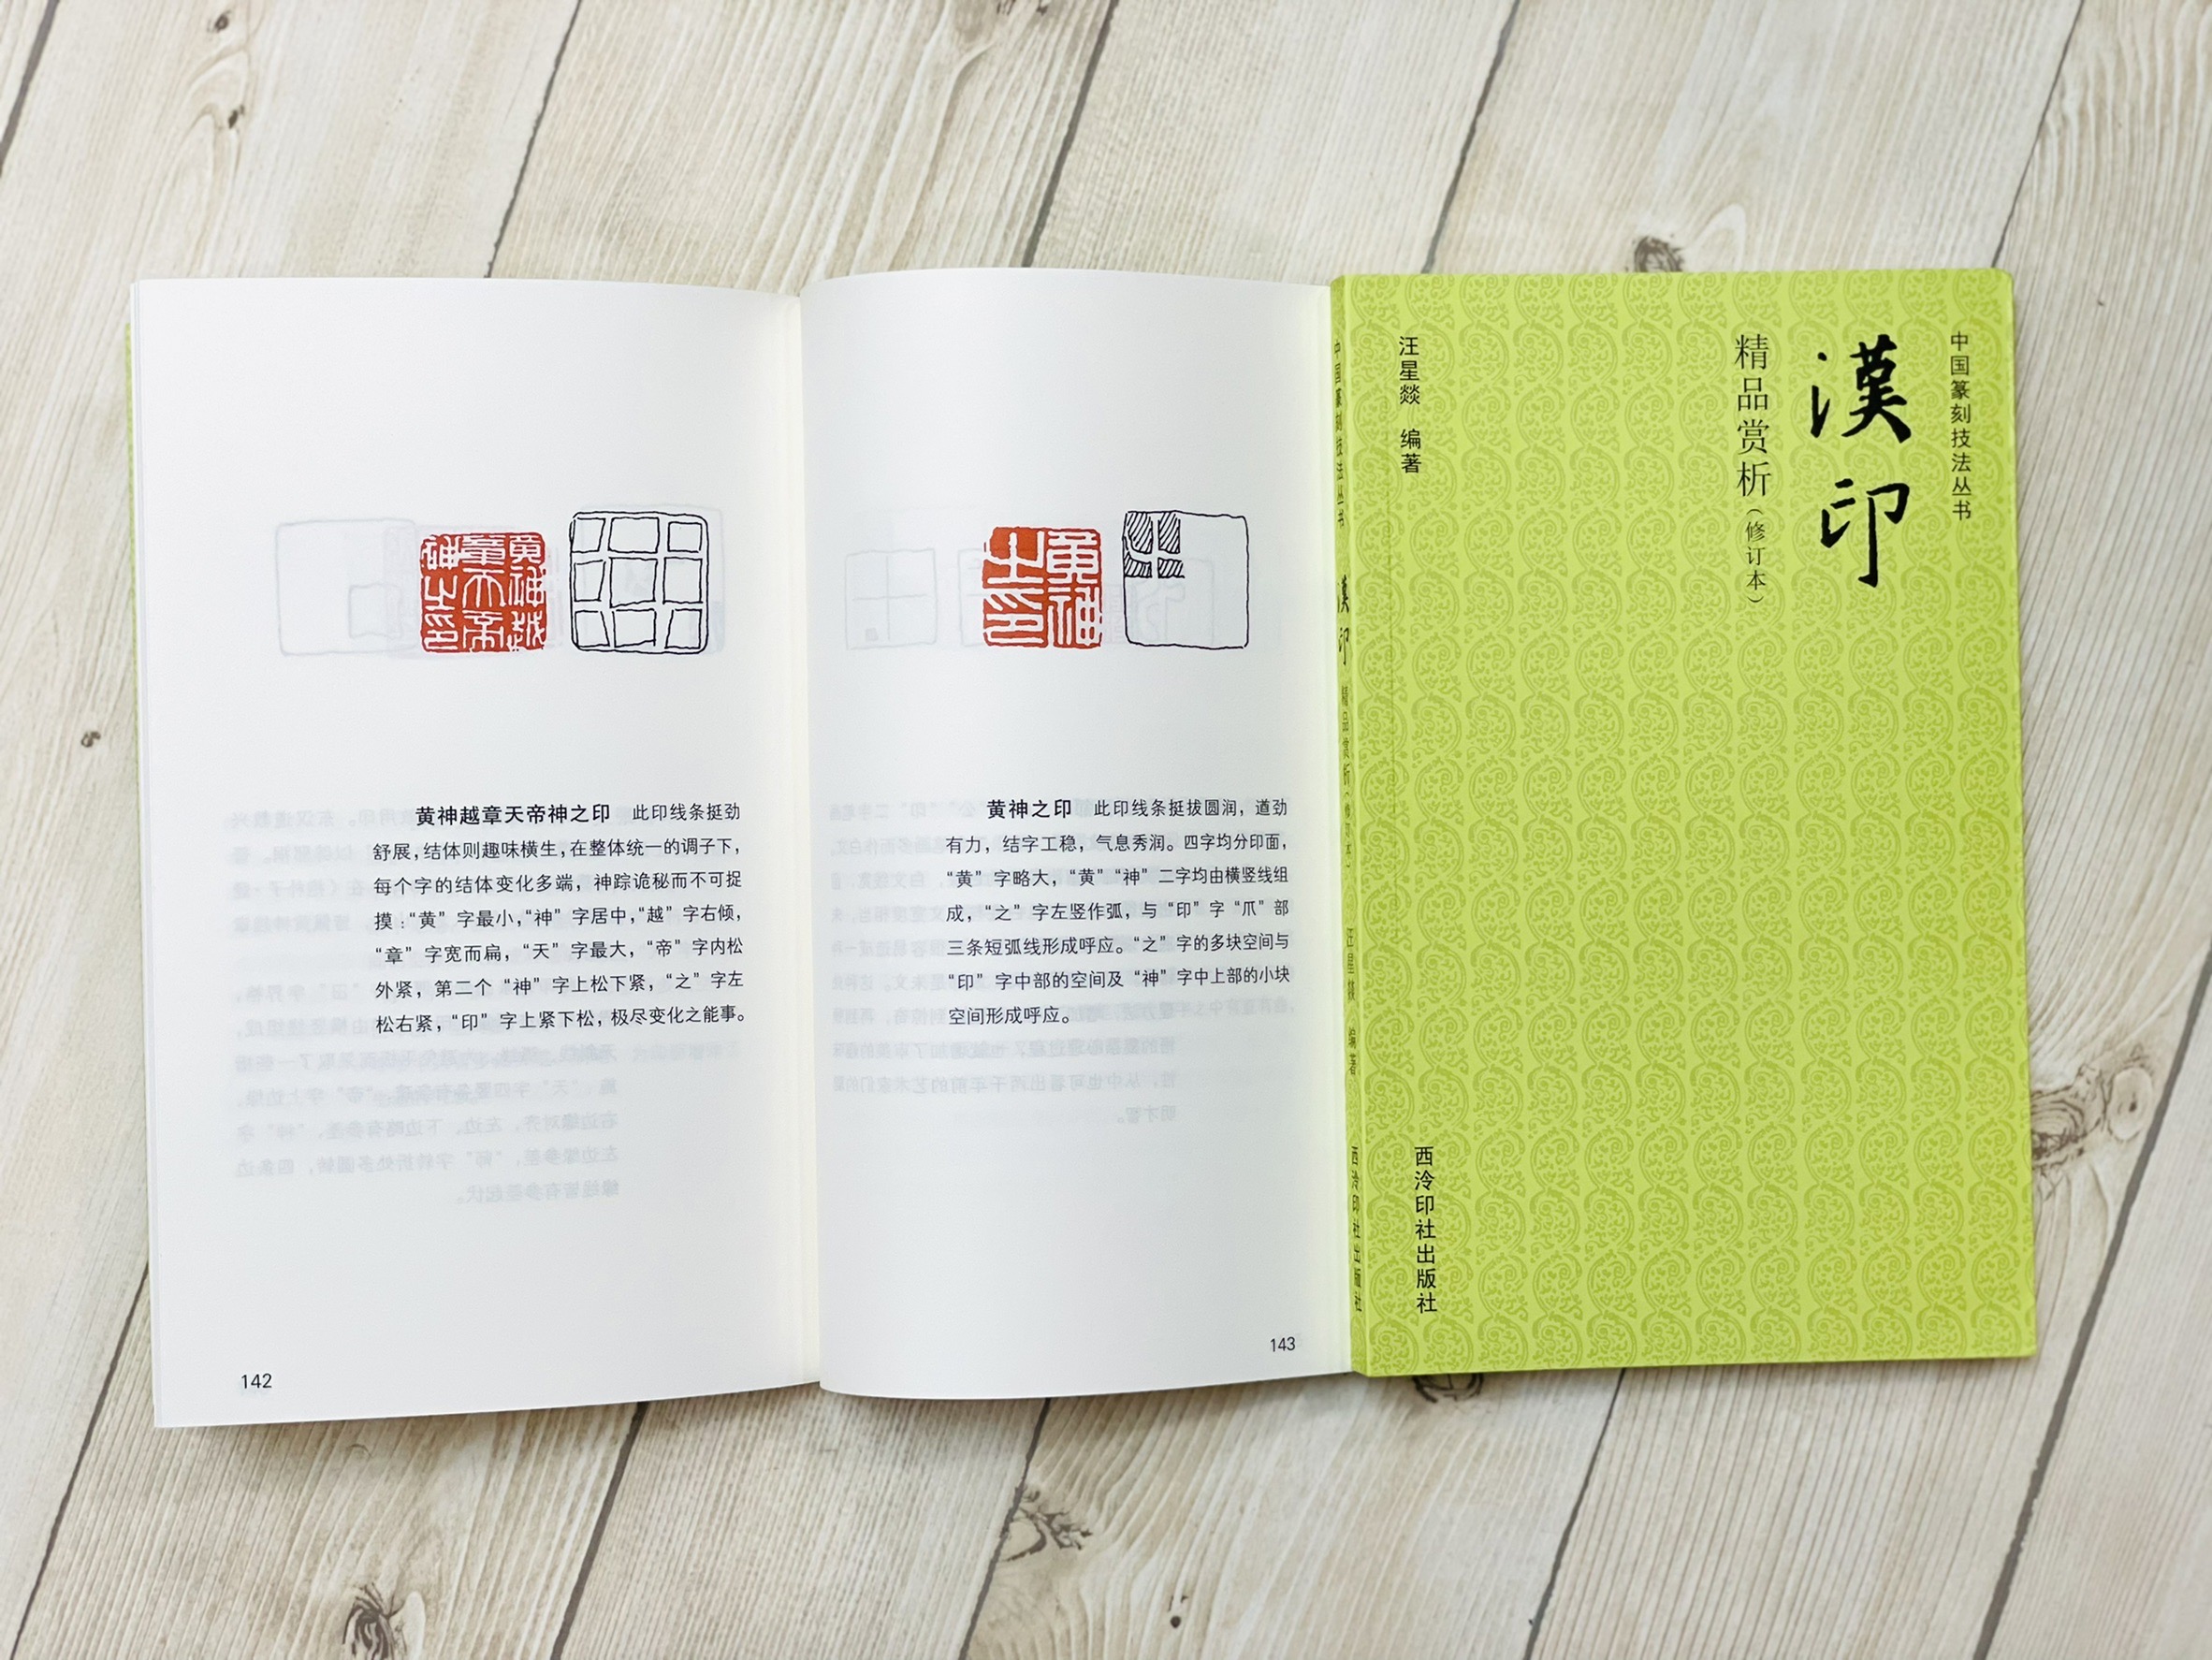 黄神越章天帝神之印 此印线条挺劲
舒展，结体则趣味横生，在整体统一的调子下，
每个字的结体变化多端，神踪诡秘而不可捉
摸：“黄”字最小，“神”字居中，“越”字右倾，
“章”字宽而扁，“天”字最大，“帝”字内松
外紧，第二个“神”字上松下紧，“之”字左
松右紧，“印”字上紧下松，极尽变化之能事。
142
黄神之印 此印线条挺拔圆润，遒劲
有力，结字工稳，气息秀润。四字均分印面，
“黄”字略大，“黄”“神”二字均由横竖线组
成，“之”字左竖作弧，与“印”字“爪”部
三条短弧线形成呼应。“之”字的多块空间与
“印”字中部的空间及“神”字中上部的小块
空间形成呼应。
143
黄神越章天帝神之印
黄神之印
中国篆刻技法丛书
漢印
精品赏析（修订本）
汪星燚 编著
西泠印社出版社
中国篆刻技法丛书 漢印 精品赏析（修订本） 汪星燚 编著 西泠印社出版社